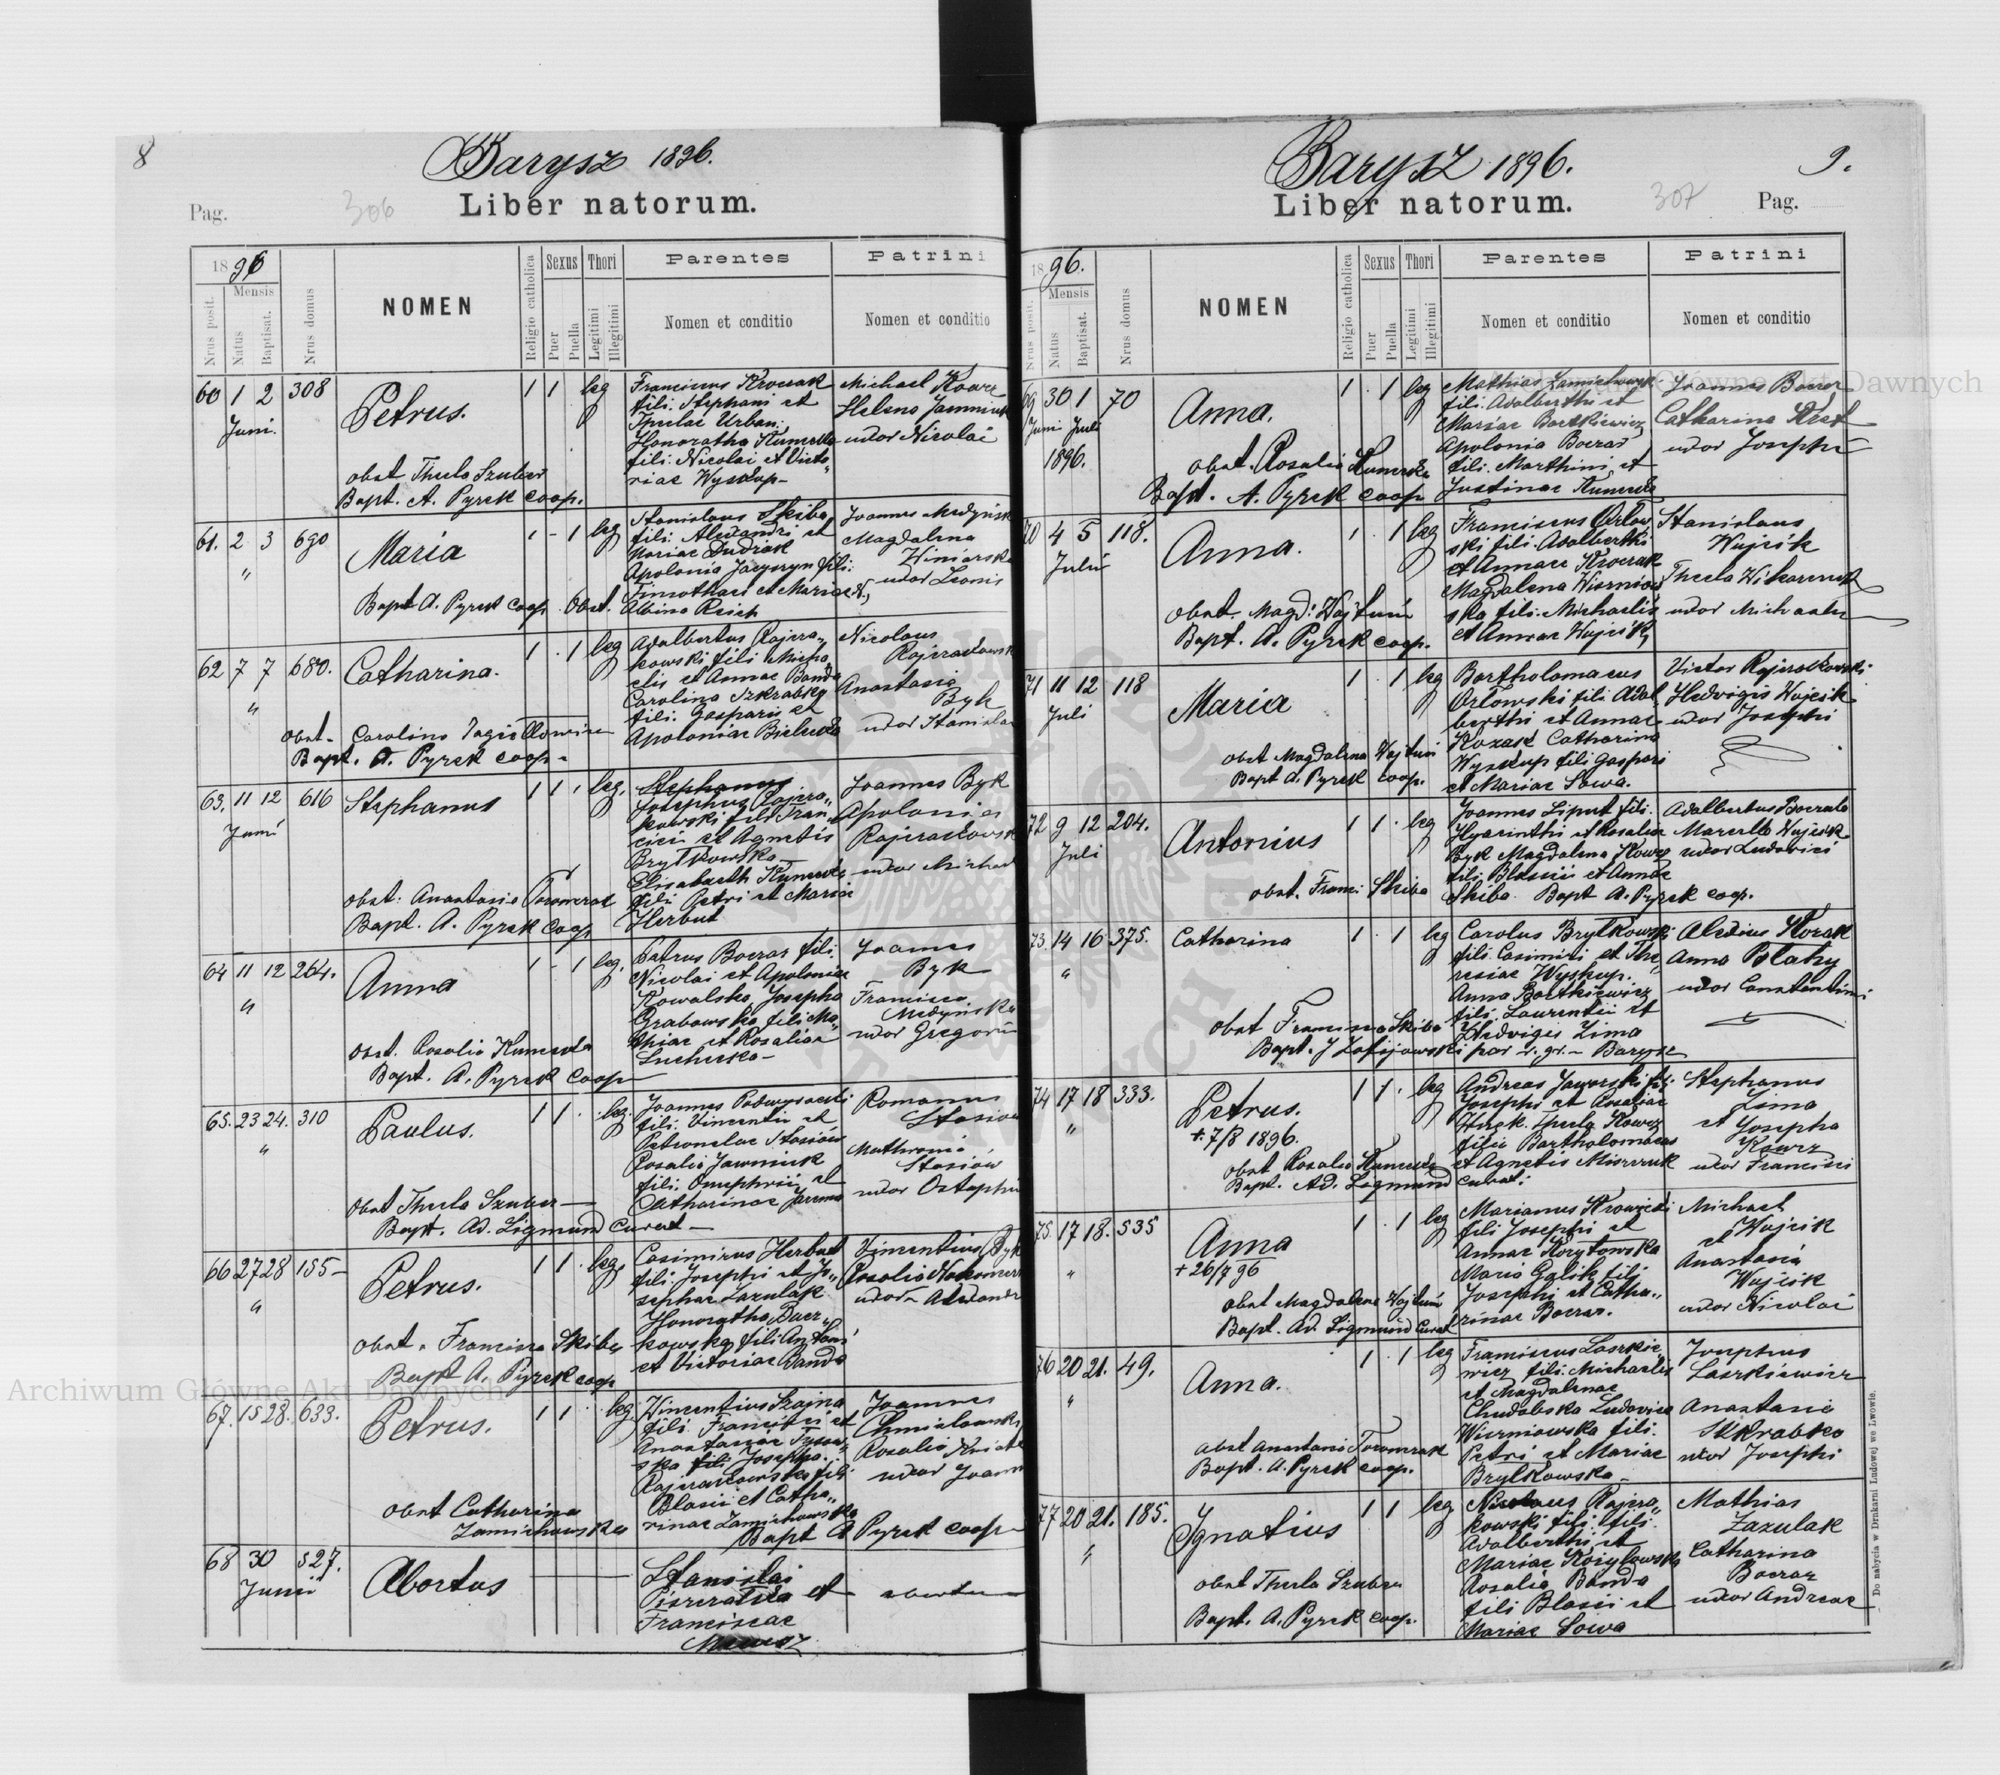 8
Barysz 1896.
Pag.
306
Liber natorum.
1896
Nrus posit.
Mensis
Natus
Baptisat.
Nrus domus
NOMEN
Religio catholica
Sexus
Puer
Puella
Thori
Legitimi
Illegitimi
Parentes
Nomen et conditio
Patrini
Nomen et conditio
60 1 2 308
Juni.
Petrus.
1 1 leg
Franciscus Krocrak
fili. Stephani et
Theclae Urban.
Honoratha Kuneska
fili. Nicolai et Victo„
riae Wyskup-
Michael Kowcz
Helena
uxor Nicolai
obst Thecla Szuber
Bapt. A. Pyrek coop.
61. 2 3 690
"
Maria
1 - 1 leg
Stanislaus Skiba
fili. Alexandri et
Mariae Dudiak
Apolonia Jacyszyn fili:
Timothaei et Mariae
Joannes
Magdalena
uxor Leonis
Bapt A. Pyrek coop. Obst. Albina Reich
62 7 7 680.
"
Catharina.
1 . 1 leg
Adalbertus Rajcra„
kowski fili Micha„
elis et Annae Banda
Carolina Szkrabko
fili. Gasparis et
Apoloniae
Nicolaus
Anastasia
Byk
uxor Stanislai
obst- Carolina
Bapt. A. Pyrek coop-
63. 11 12 616
Junii
Stephanus
1 1 . leg.
Stephanus
Josephus Rajcra„
kowski fili Fran„
cisci et Agnetis
Brytkowska
Elisabaeth Kuneska
fili Petri et Maria
Herbut
Joannes Byk
Apolonia
uxor Michael
obst. Anastasia
Bapt. A. Pyrek coop
64 11 12 264.
"
Anna
1 - 1 leg.
Petrus Bocras fili.
Nicolai et Apoloniae
Kowalska, Josepha
Grabowska fili Ma„
thiae et Rosaliae
Joannes
Byk
Francisca
uxor Gregorii
obst. Rosalia Kuneska
Bapt. A. Pyrek coop
65. 23 24. 310
"
Paulus.
1 1 . leg.
Joannes Podwysocki
fili. Vincentii et
Petronelae Stasiów
Rosalia Jawniuk
fili. Onuphrii et
Catharinae Jarema
Romanus
Stasiow
Mathrona
Stasiów
uxor Ostaphii
obst Thecla Szuber-
Bapt. Ad. Sigmund Curat-
66 27 28 155-
"
Petrus.
1 1 . leg.
Casimirus Herbut
fili. Josephi et Jo„
sephae Zazulak
Honoratha
kowska fili Antoni
et Victoriae Banda
Vincentius Byk
Rosalia
uxor- Alexandr
obst. Francisca Skiba
Bapt A. Pyrek coop
67. 15 28. 633.
Petrus.
1 1 . leg
Vincentius Szajna
fili Francisci et
Anastasiae
ska fili Josepha.
fili.
Blasii et Catha„
rinae Zamichowska
Joannes
Rosalia
uxor Joann
obst Catharina
Zamichowska
Bapt A Pyrek coop-
68 30 527.
Junii
Abortus
Stanislai
et
Franciscae
abortus
Barysz 1896.
9.
Liber natorum.
307
Pag.
1896.
Nrus posit.
Mensis
Natus
Baptisat.
Nrus domus
NOMEN
Religio catholica
Sexus
Puer
Puella
Thori
Legitimi
Illegitimi
Parentes
Nomen et conditio
Patrini
Nomen et conditio
69 30 1 70
Juni Juli
1896.
Anna.
1 . 1 leg
Mathias
fili. Adalberthi et
Mariae Bartkiewicz
Apolonia Bocras
fili. Marthini et
Justinae Kuneska
Joannes Bocrar
Catharina Kret
uxor Josephi
obst. Rosalia Kuneska
Bapt. A. Pyrek coop
70 4 5 118.
Julii
Anna.
1 . 1 leg
Franciscus Orłow
ski fili. Adalberthi
et Annae Krocrak
Magdalena Wierniow
ska fili. Michaelis
et Annae Wujcik
Stanislaus
Wujcik
Thecla
uxor
obst. Magd: Wojtuń
Bapt. A. Pyrek coop.
71 11 12 118
Juli
Maria
1 . 1 leg
Bartholomaeus
Orłowski fili Adal„
berthi et Annae
Kozak Catharina
Wyskup fili Gaspari
et Mariae Sowa.
Victor Rajcrakowski
Hedvigis Wujcik
uxor Josephi
obst Magdalena Wojtuń
Bapt A. Pyrek coop.
72 9 12 204.
Juli
Antonius
1 1 . leg
Joannes Liput fili.
Hyacinthi et Rosaliae
Byk Magdalena Kowcz
fili Blasii et Annae
Skiba. Bapt A. Pyrek coop.
Adalbertus
Marcella Wujcik
uxor Ludovici
obst. Franci Skiba
73. 14 16 375.
"
Catharina
1 . 1 leg
Carolus Brytkowski
fili. Casimiri et The„
resiae Wyskup.
Anna Bartkiewicz
fili. Laurentii et
Hedviges Zima
Alexius Kozak
Anna Blahy
uxor Constantini
obst Francisca Skiba
Bapt. J par r. gr.- Barysz
74 17 18 333.
"
Petrus.
+ 7/8 1896.
1 1 . leg
Andreas Jaworski fili
Josephi et Rosaliae
Thecla Kowcz
filia Bartholomaeus
et Agnetis
Stephanus
Zima
et Josepha
Kowcz
uxor Francisci
obst Rosalia Kuneska
Bapt. Ad. Sigmund curat:
75. 17 18. 535
"
Anna
+ 26/7 96
1 . 1 leg
Marianus
fili Josephi et
Annae Korytowska
Maria Galik fili
Josephi et Catha„
rinae Bocrar.
Michael
Wujcik
et
Anastasia
Wujcik
uxor Nicolai
obst Magdalena Wojtuń
Bapt. Ad. Sigmund Curat
76 20 21. 49.
"
Anna.
1 . 1 leg
Franciscus Laszkie„
wicz fili. Michaelis
et Magdalenae
Chudobska Ludovica
Wierniowska fili.
Petri et Mariae
Brytkowska-
Josephus
Laszkiewicz
Anastasia
Szkrabko
uxor Josephi
obst Anastasia
Bapt. A. Pyrek coop.
77 20 21. 185.
"
Ignatius
1 1 leg
Nicolaus Rajcra„
kowski fili. fili.
Adalberthi et
Mariae Korytowska
Rosalia Banda
fili Blasii et
Mariae Sowa
Mathias
Zazulak
Catharina
Bocrar
uxor Andreae
obst Thecla Szuber
Bapt. A. Pyrek coop.
Do nabycia w Drukarni Ludowej we Lwowie.
Archiwum Główne Akt Dawnych
Archiwum Główne Akt Dawnych